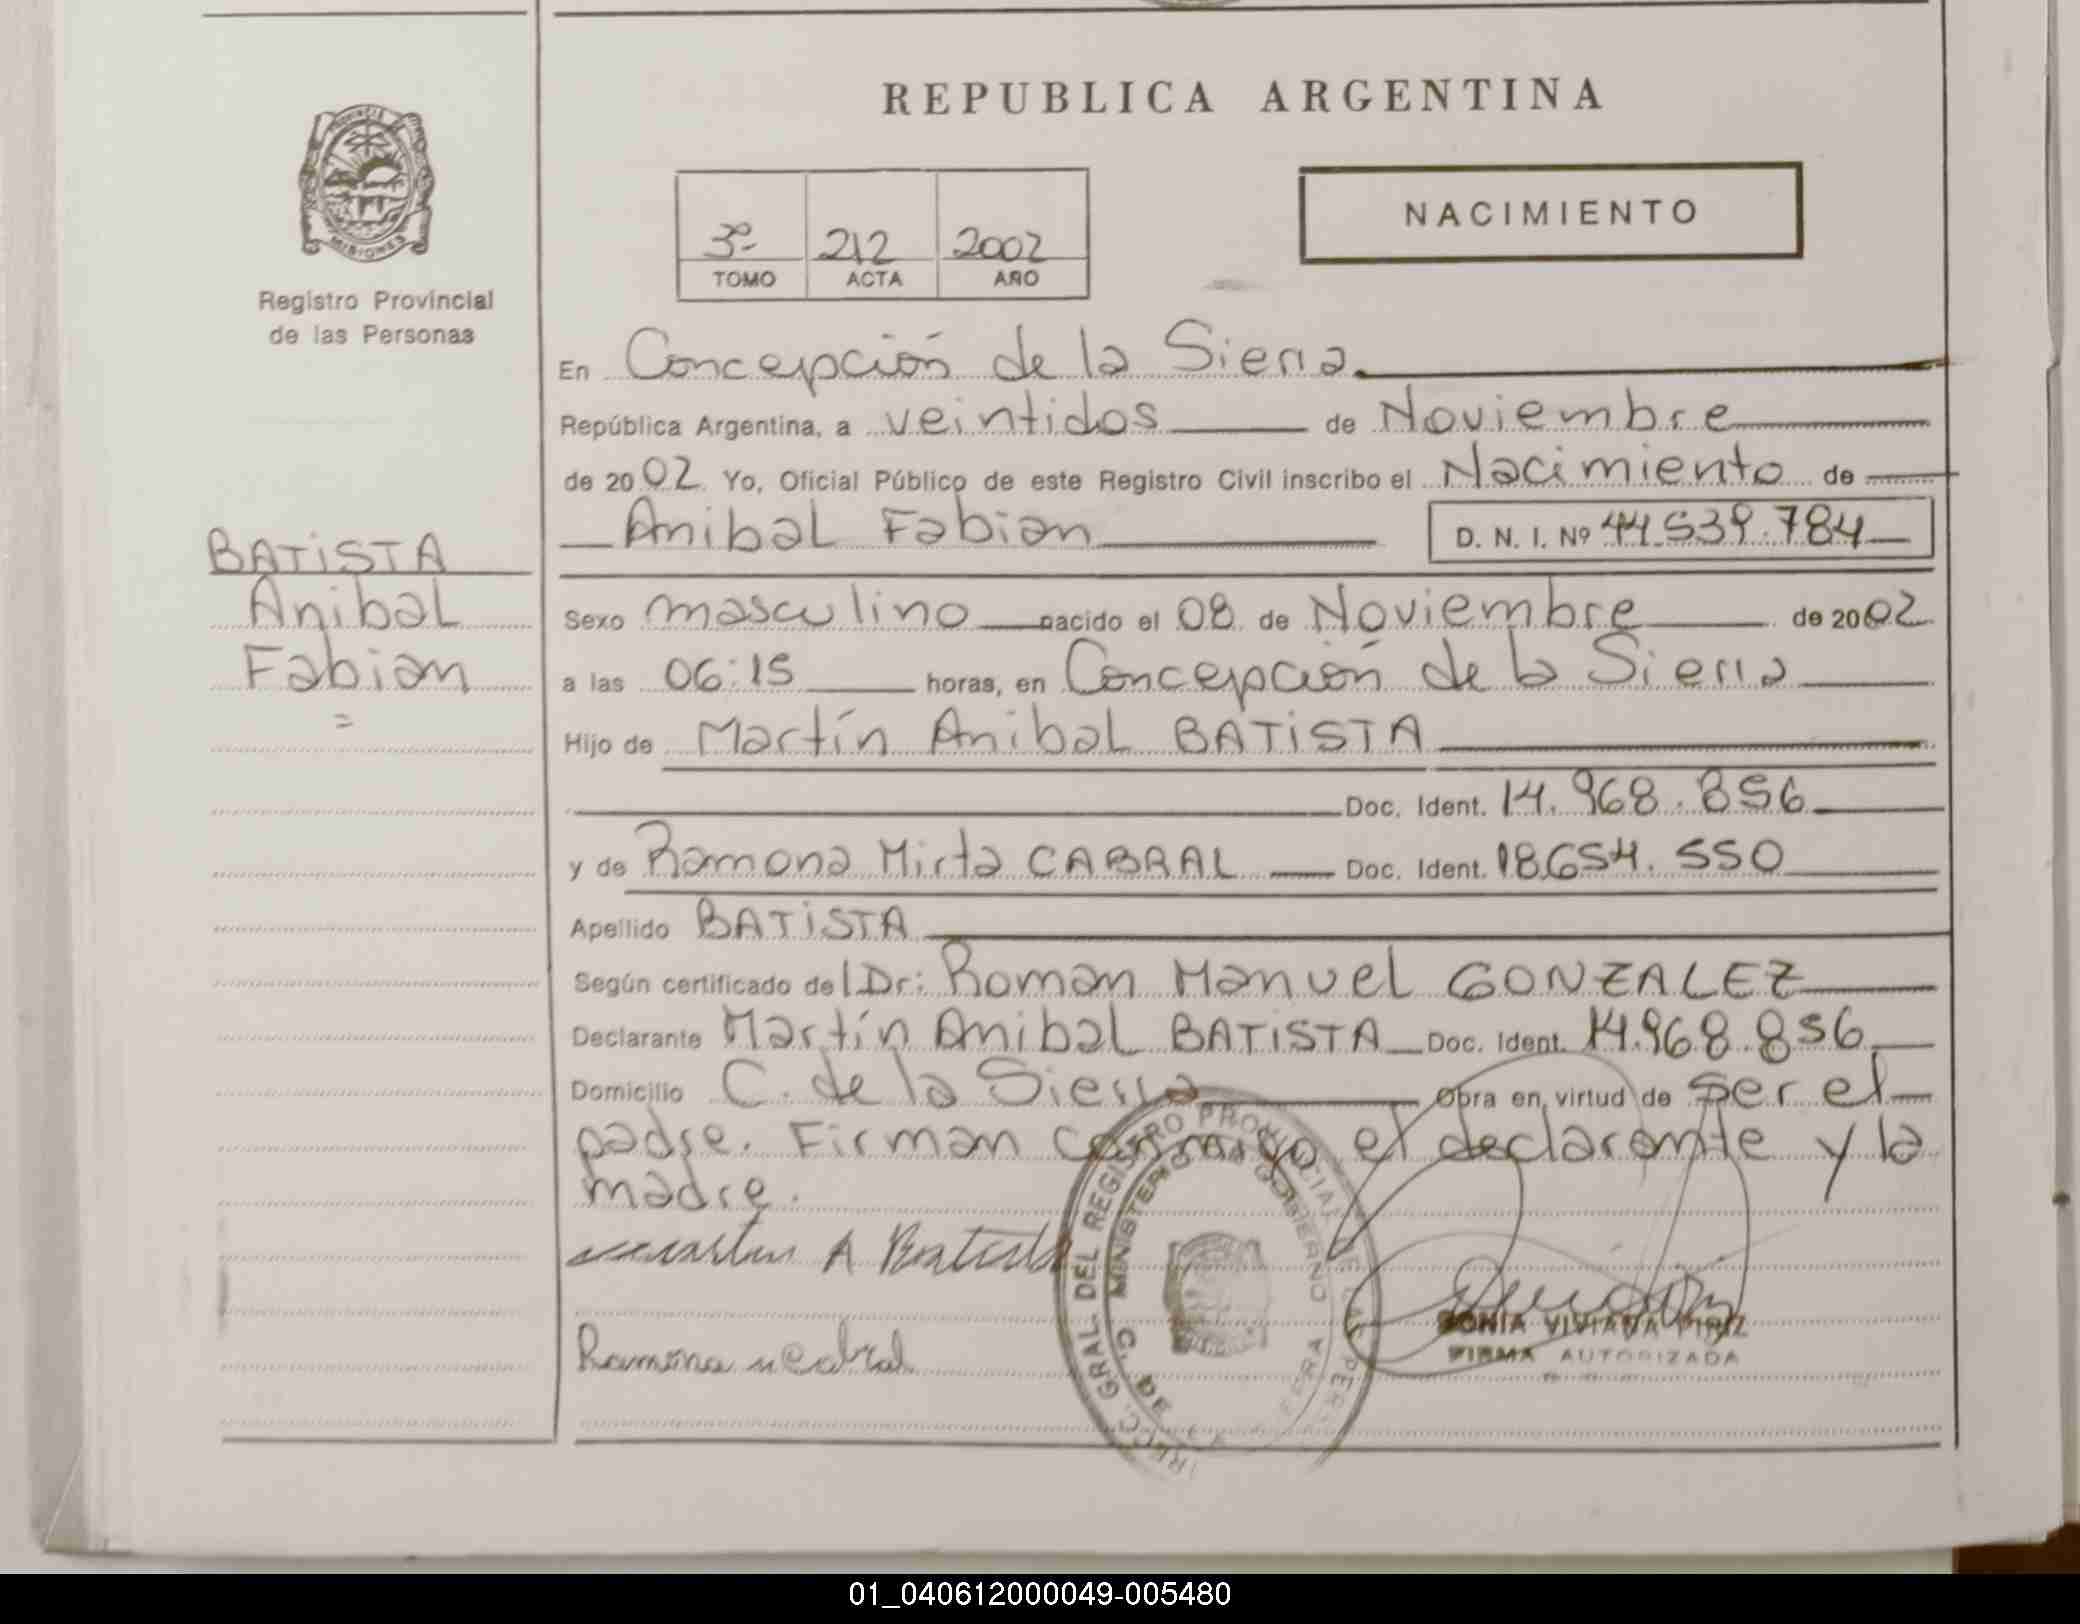 REPUBLICA ARGENTINA
PROVINCIA DE
MISIONES
Registro Provincial
de las Personas
3º 212 2002
TOMO ACTA AÑO
NACIMIENTO
BATISTA
Anibal
Fabian
=
En Concepción de la Sierra
República Argentina, a veintidos de Noviembre
de 2002 Yo, Oficial Público de este Registro Civil inscribo el Nacimiento de
Anibal Fabian D. N. I. Nº 44.539.784
Sexo masculino nacido el 08 de Noviembre de 2002
a las 06:15 horas, en Concepción de la Sierra
Hijo de Martín Anibal BATISTA
Doc. Ident. 14.968.856
y de Ramona Mirta CABRAL Doc. Ident. 18.654.550
Apellido BATISTA
Según certificado del Dr: Roman Manuel GONZALEZ
Declarante Martín Anibal BATISTA Doc. Ident. 14.968.856
Domicilio C. de la Sierra Obra en virtud de ser el
padre. Firman conmigo el declarante y la
madre.
Martin A Batista
Ramona M Cabral
DIRECC. GRAL. DEL REGISTRO PROVINCIAL DE LAS PER
MINISTERIO DE GOBIERNO
SONIA VIVIANA PIRIZ
FIRMA AUTORIZADA
01_040612000049-005480